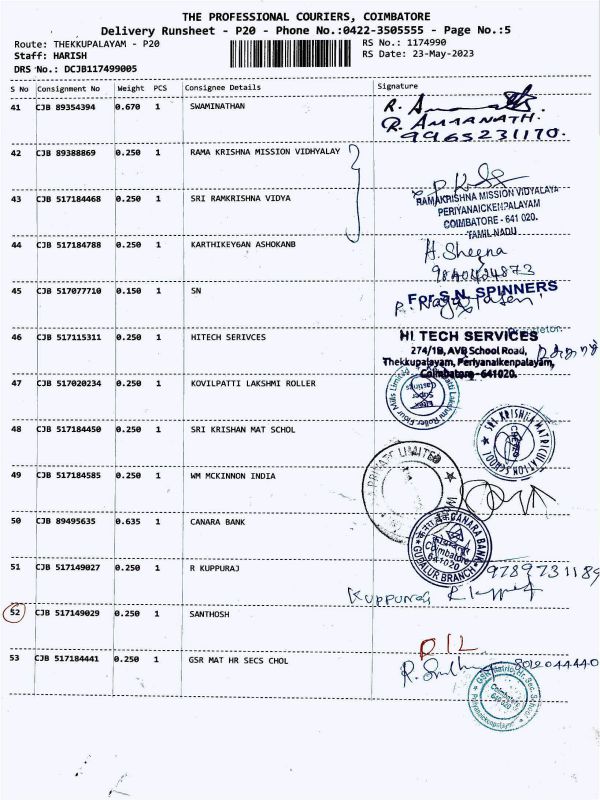 THE PROFESSIONAL COURIERS, COIMBATORE
Delivery Runsheet - P20 - Phone No.:0422-3505555 - Page No.:5
Route: THEKKUPALAYAM - P20 RS No.: 1174990
Staff: HARISH RS Date: 23-May-2023
DRS No.: DCJB117499005
S No Consignment No Weight PCS Consignee Details Signature
41 CJB 89354394 0.670 1 SWAMINATHAN
R. AMARNATH.
9965231170.
42 CJB 89388869 0.250 1 RAMA KRISHNA MISSION VIDHYALAY
43 CJB 517184468 0.250 1 SRI RAMKRISHNA VIDYA
RAMAKRISHNA MISSION VIDYALAYA
PERIYANAICKENPALAYAM
COIMBATORE - 641 020.
TAMIL NADU
44 CJB 517184788 0.250 1 KARTHIKEY6AN ASHOKANB
H. Sheena
45 CJB 517077710 0.150 1 SN
For S.N. SPINNERS
Proprietor.
46 CJB 517115311 0.250 1 HITECH SERIVCES
HI TECH SERVICES
274/1B, AVB School Road,
Thekkupalayam, Periyanaikenpalayam,
Coimbatore - 641020.
47 CJB 517020234 0.250 1 KOVILPATTI LAKSHMI ROLLER
Lakshmi Roller Flour Mills Limited
48 CJB 517184450 0.250 1 SRI KRISHAN MAT SCHOL
SRI KRISHNA MATRICULATION SCHOOL
49 CJB 517184585 0.250 1 WM MCKINNON INDIA
PRIVATE LIMITED
50 CJB 89495635 0.635 1 CANARA BANK
CANARA BANK
Coimbatore
641020
GUDALUR BRANCH
51 CJB 517149027 0.250 1 R KUPPURAJ
9789731189
Kuppuraj
52 CJB 517149029 0.250 1 SANTHOSH
D/L
53 CJB 517184441 0.250 1 GSR MAT HR SECS CHOL
GSR Matric. Hr. Sec. School
Coimbatore
641 020